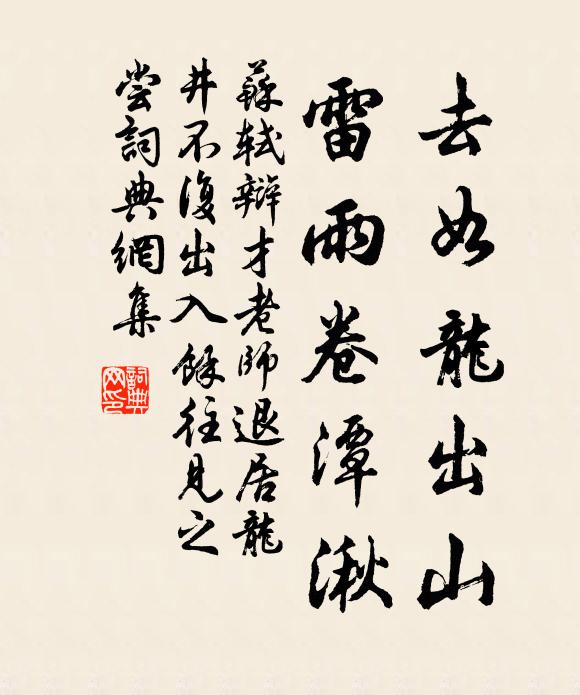 去如龍出山
雷雨卷潭湫
蘇軾辯才老師退居龍
井不復出入餘往見之
嘗詞典網集
詞典
网印